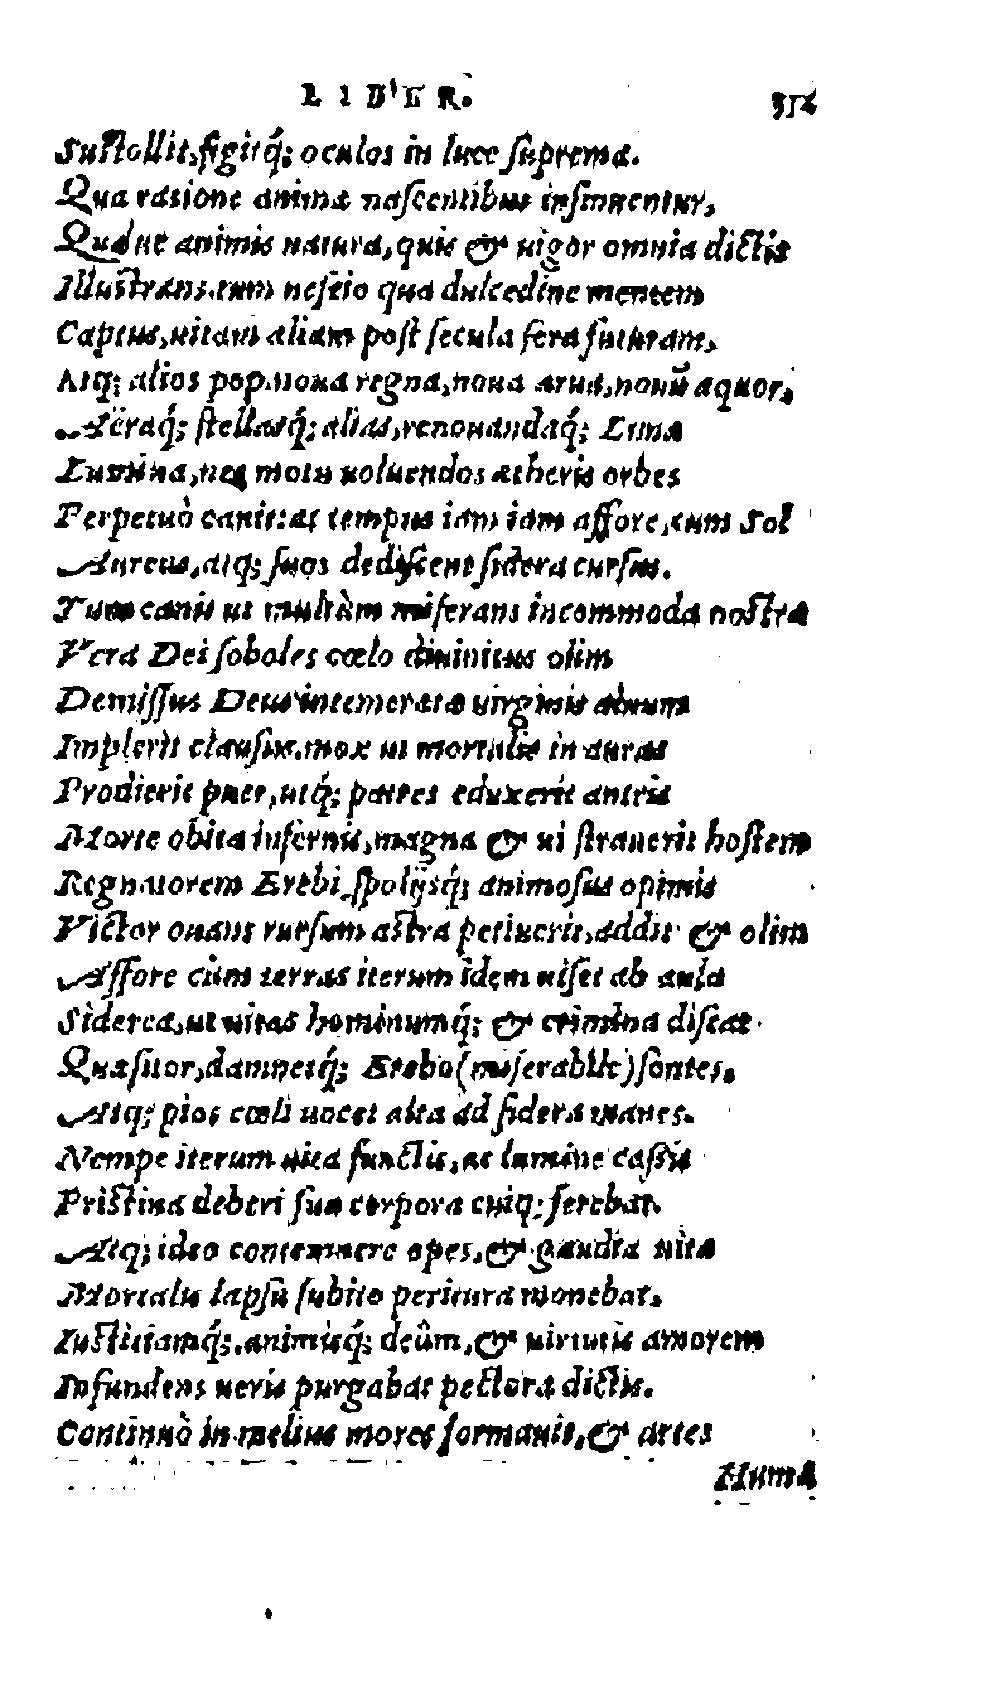 LIBER. 312
Sustollit, figitq́; oculos in luce suprema.
Qua ratione animæ nascentibus insinuentur,
Quæue animis natura, quis & uigor omnia dictis
Illustrans. tum nescio qua dulcedine mentem
Captus, uitam aliam post secula fera futuram,
Atq; alios pop. noua regna, noua arua, nouũ æquor,
Aëraq́; stellasq́; alias, renouandaq́; Lunæ
Lumina, neq; motu uoluendos ætheris orbes
Perpetuò canit: ac tempus iam iam affore, cum Sol
Aureus, atq; suos dediscent sidera cursus.
Tum canit ut multùm miserans incommoda nostra
Vera Dei soboles cœlo diuinitus olim
Demissus Deus intemeratæ uirginis aluum
Implerit clausus. mox ut mortalis in auras
Prodierit puer, utq́; patres eduxerit antris
Morte obita infernis, magna & ui strauerit hostem
Regnatorem Erebi, spolijsq́; animosus opimis
Victor ouans rursum astra petiuerit, addit & olim
Affore cùm terras iterum idem uiset ab aula
Siderea, ut uitas hominumq́; & crimina discat
Quæsitor, damnetq́; Erebo (miserabile) sontes.
Atq; pios cœli uocet alta ad sidera manes.
Nempe iterum uita functis, ac lumine cassis
Pristina deberi sua corpora cuiq; ferebat.
Atq; ideo contemnere opes, & gaudia uitæ
Mortalis lapsu subito peritura monebat.
Iustitiamq́;, animisq́; deûm, & uirtutis amorem
Infundens ueris purgabat pectora dictis.
Continuò in melius mores formauit, & artes
Huma